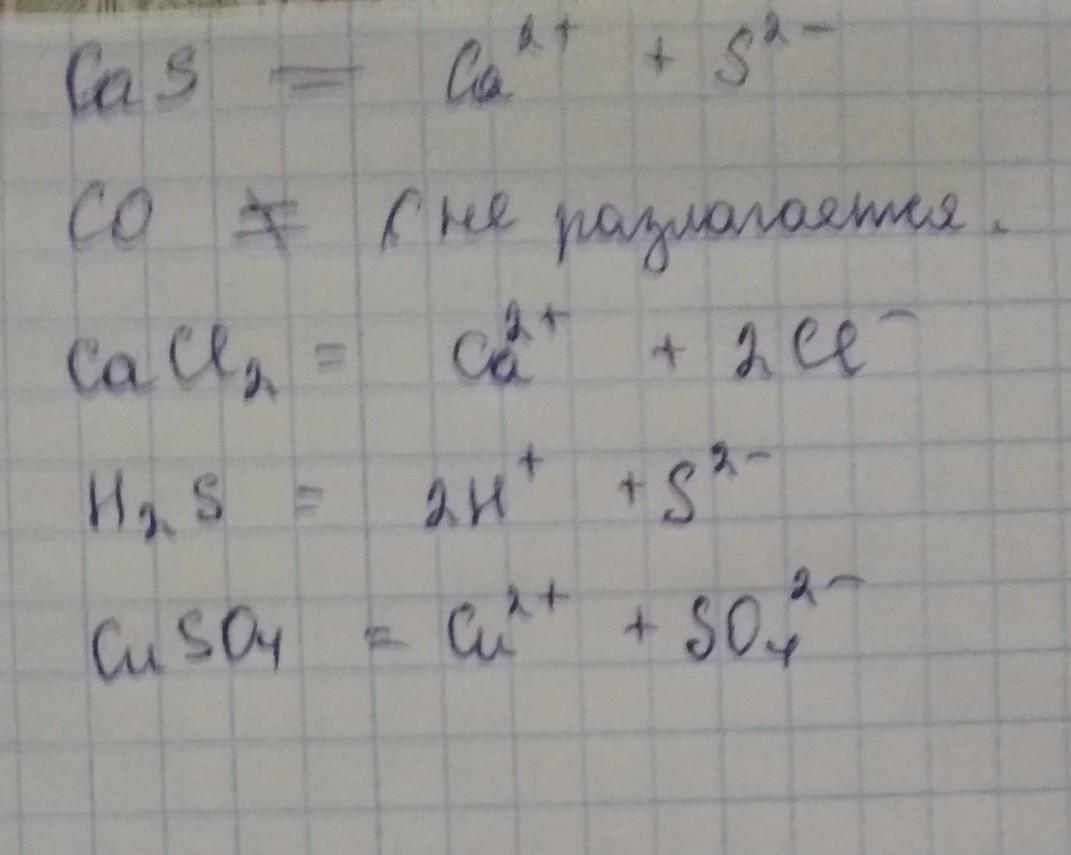 CaS = Ca²⁺ + S²⁻
CO ≠ (не разлагается.
CaCl₂ = Ca²⁺ + 2Cl⁻
H₂S = 2H⁺ + S²⁻
CuSO₄ = Cu²⁺ + SO₄²⁻